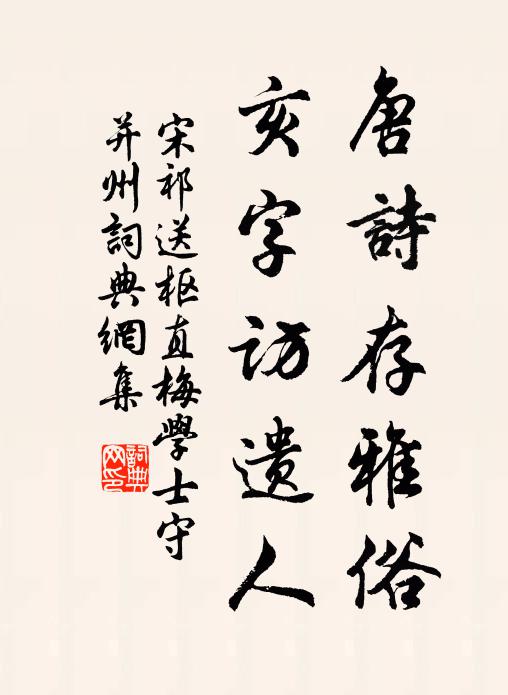 唐詩存雅俗
亥字访遗人
宋祁送枢直梅學士守
并州詞典網集
詞典网印